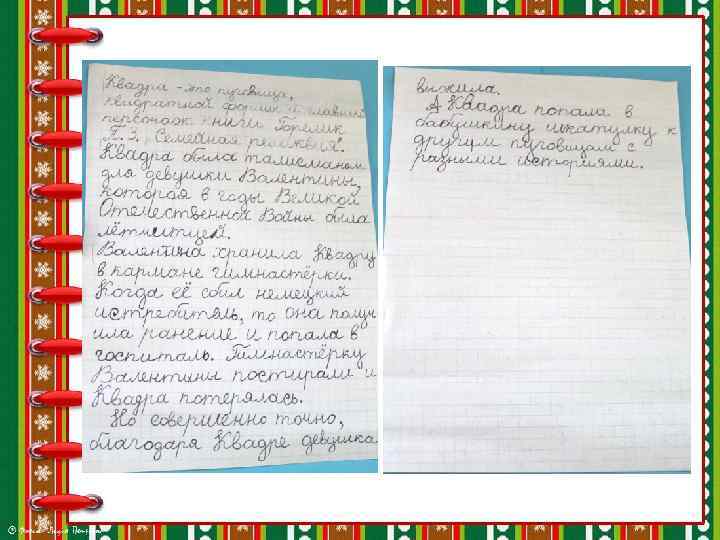 Квадра - это пуговица,
квадратной формы и главный
персонаж книги Горелик
П. З. Семейная реликвия.
Квадра была талисманом
для девушки Валентины,
которая в годы Великой
Отечественной Войны была
лётчитцей.
Валентина хранила Квадру
в кармане гимнастёрки.
Когда её сбил немецкий
истребитель, то она получ
ила ранение и попала в
госпиталь. Гимнастёрку
Валентины постирали и
Квадра потерялась.
Но совершенно точно,
благодаря Квадре девушка
выжила.
А Квадра попала в
бабушкину шкатулку к
другим пуговицам с
разными историями.